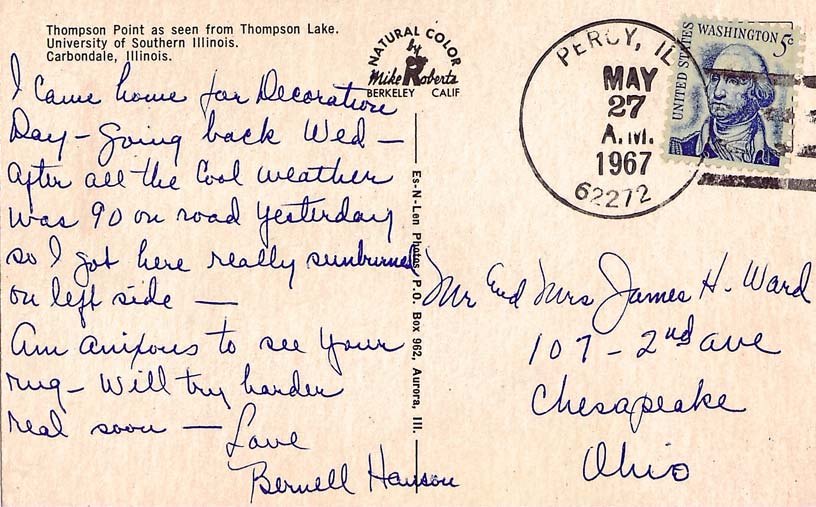 Thompson Point as seen from Thompson Lake.
University of Southern Illinois.
Carbondale, Illinois.
NATURAL COLOR
by
Mike Roberts
BERKELEY CALIF
PERCY, IL
MAY
27
A.M.
1967
62272
UNITED STATES
WASHINGTON 5c
I came home for Decoration
Day - going back Wed -
After all the cool weather
was 90 on road yesterday
so I got here really sunburned
on left side -
Am anixous to see your
rug - Will try harder
real soon - Love
Bernell Hanson
Es-N-Len Photos P.O. Box 962, Aurora, Ill.
Mr and Mrs James H. Ward
107 - 2nd ave
Chesapeake
Ohio